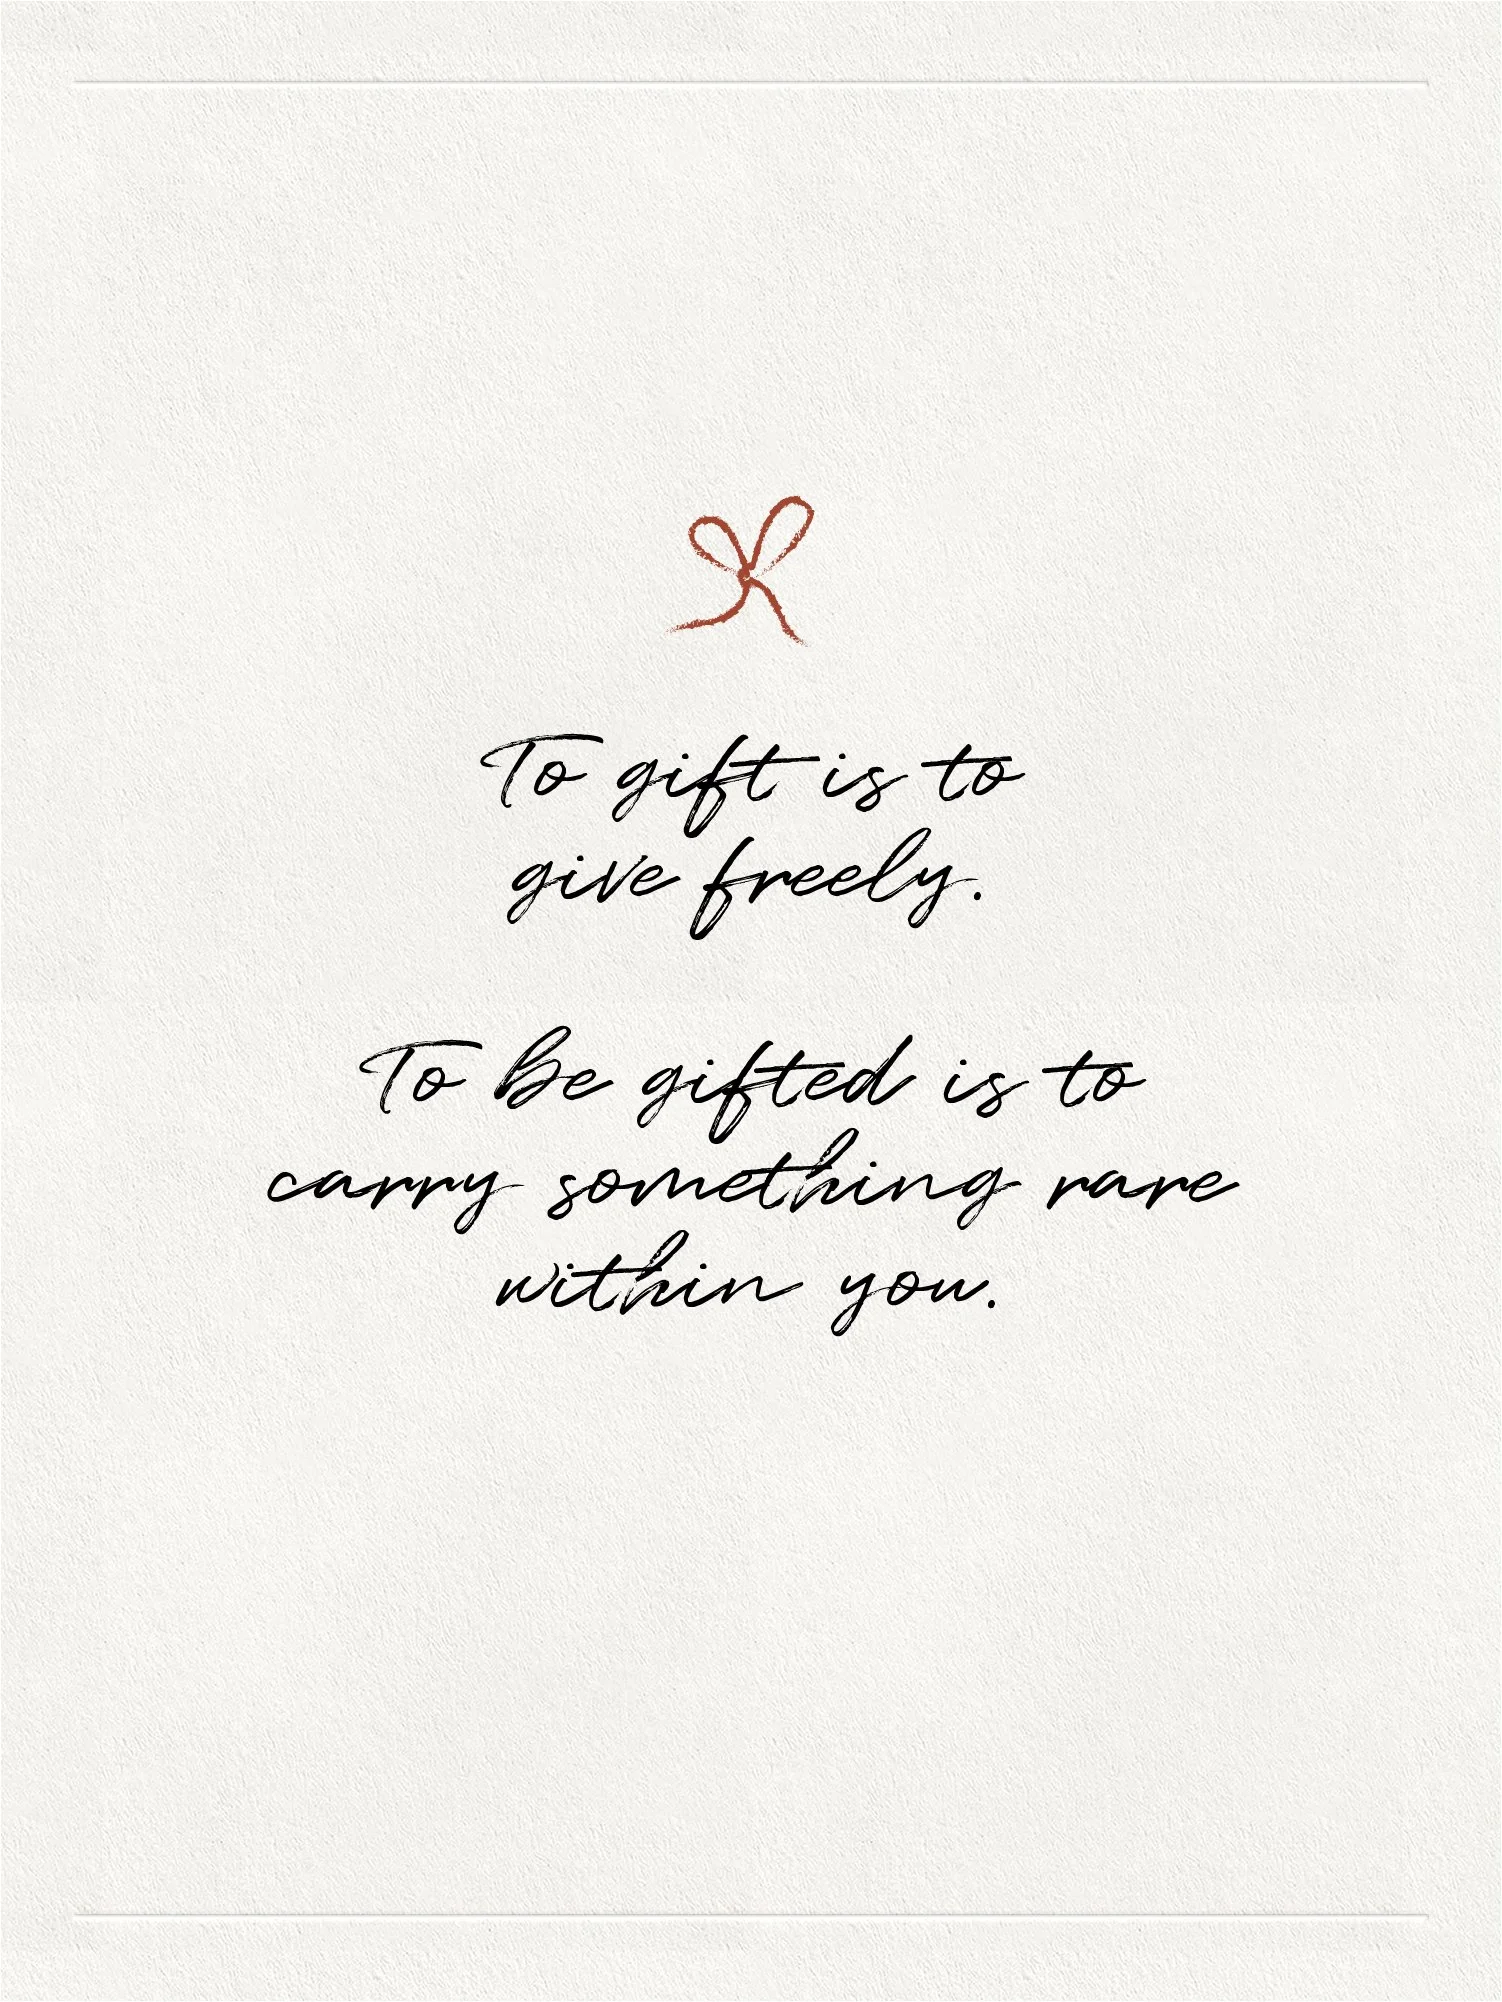 To gift is to
give freely.
To be gifted is to
carry something rare
within you.